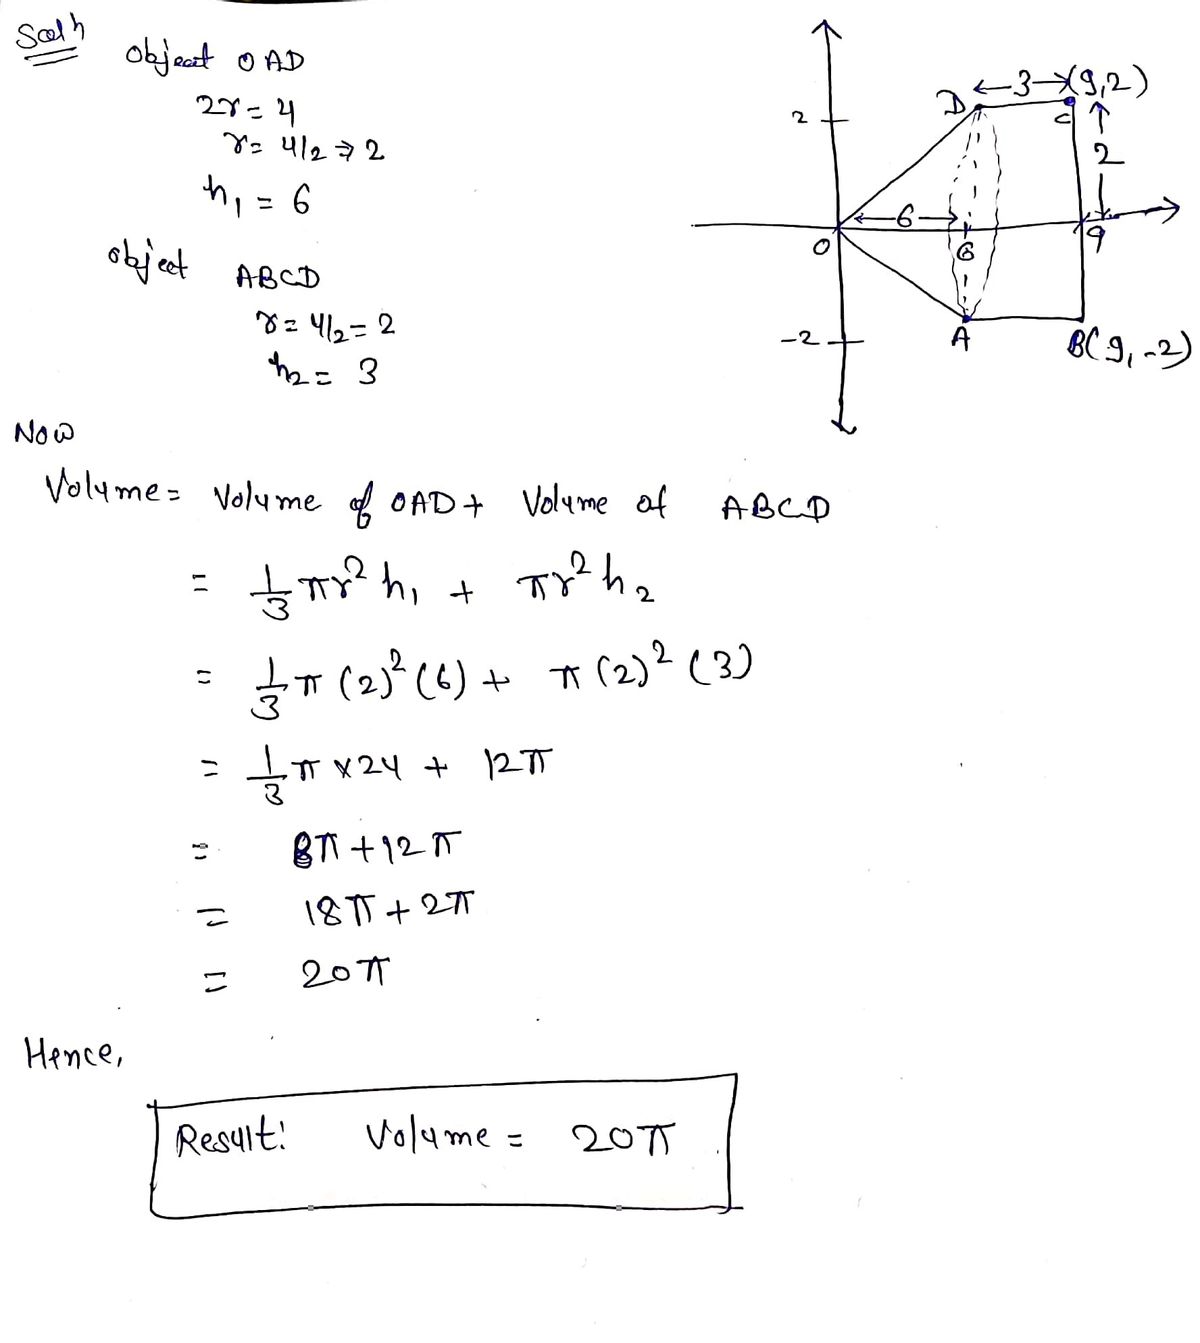 Soln
Object OAD
2r = 4
r = 4/2 ⇒ 2
h₁ = 6
object ABCD
r = 4/2 = 2
h₂ = 3
D ←3→ (9,2)
2
C
2
←6→
O
6
9
-2
A
B(9, -2)
Now
Volume = Volume of OAD + Volume of ABCD
= 1/3 πr² h₁ + πr² h₂
= 1/3 π (2)² (6) + π (2)² (3)
= 1/3 π × 24 + 12π
= 8π + 12π
= 18π + 2π
= 20π
Hence,
Result: Volume = 20π